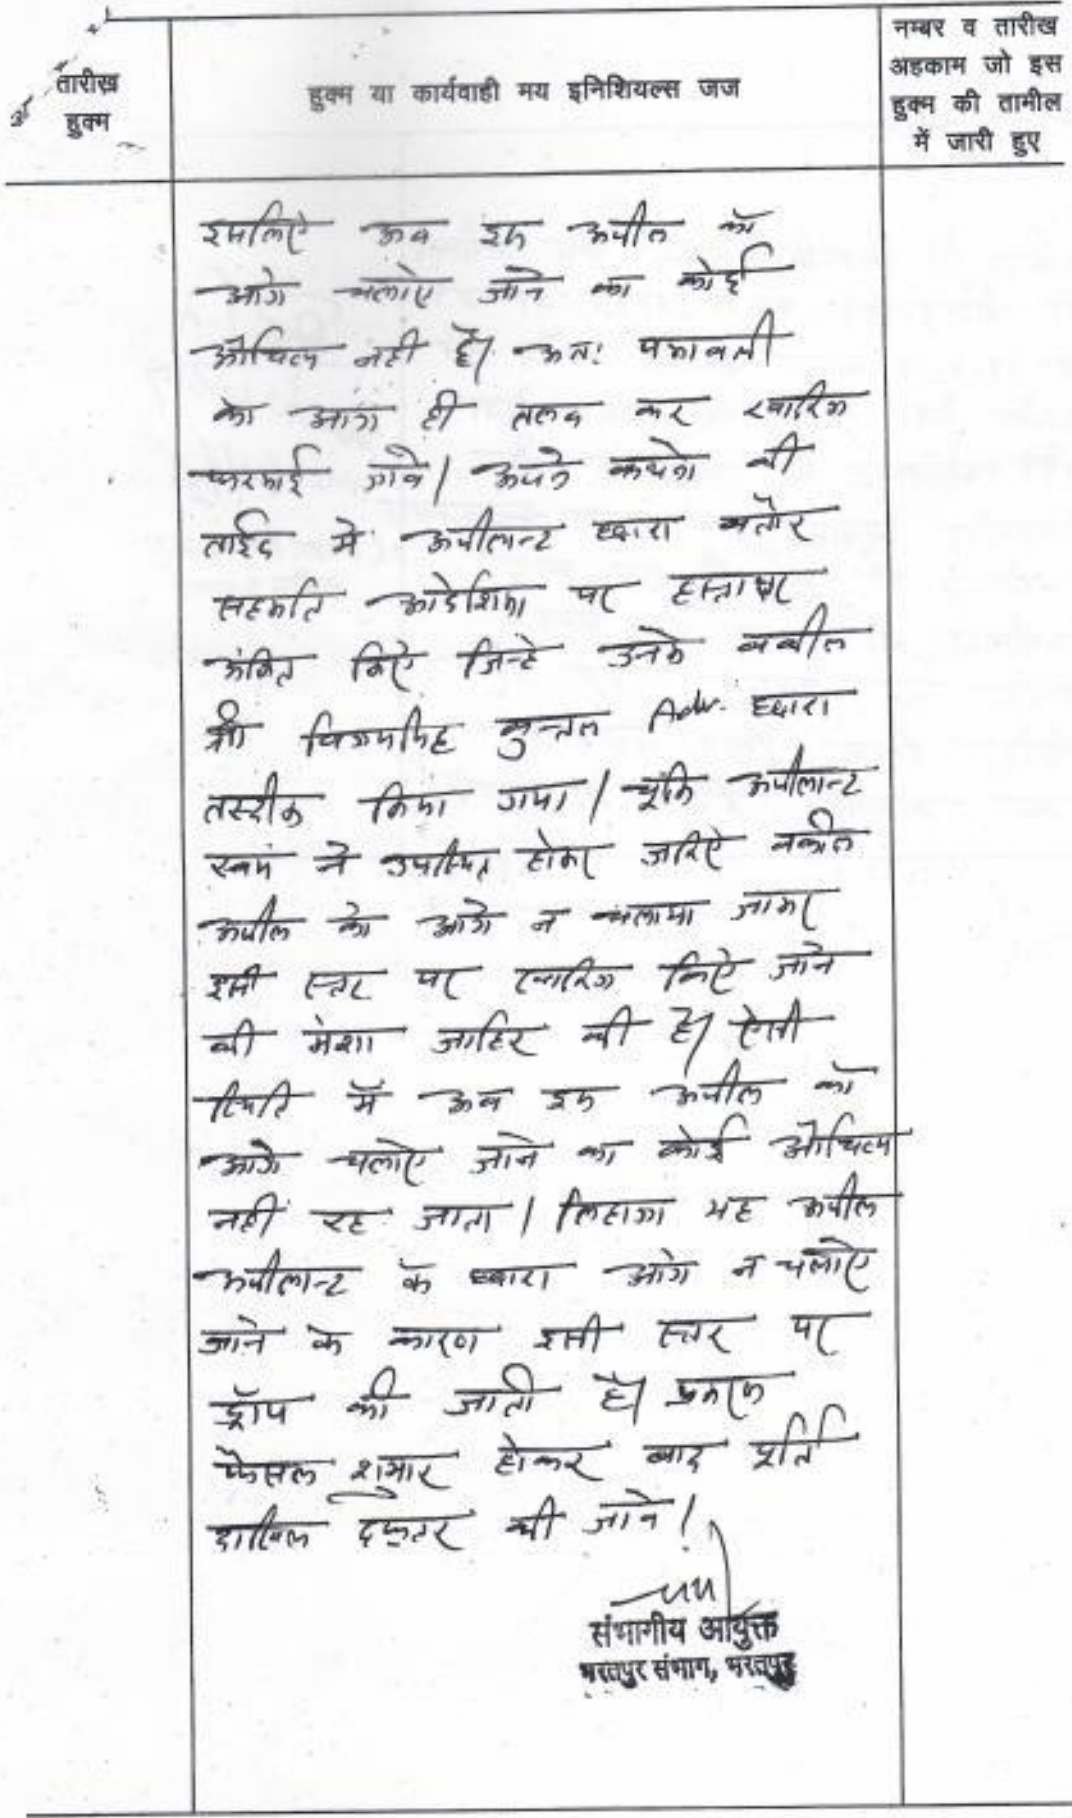 तारीख़
हुक्म
हुक्म या कार्यवाही मय इनिशियल्स जज
नम्बर व तारीख
अहकाम जो इस
हुक्म की तामील
में जारी हुए
इसलिए अब इस अपील को
आगे चलाए जाने का कोई
औचित्य नही है। अतः पत्रावली
को आज ही तलब कर खारिज
फरमाई जावे। अपने कथनो की
ताईद में अपीलान्ट द्वारा बतौर
सहमति आदेशिका पर हस्ताक्षर
अंकित किए जिन्हे उनके वकील
श्री विजयसिंह कुन्तल Adv. द्वारा
तस्दीक किया गया। चूंकि अपीलान्ट
स्वयं ने उपस्थित होकर जरिए वकील
अपील को आगे न चलाया जाकर
इसी स्तर पर खारिज किए जाने
की मंशा जाहिर की है। ऐसी
स्थिति में अब इस अपील को
आगे चलाए जाने का कोई औचित्य
नहीं रह जाता। लिहाजा यह अपील
अपीलान्ट के द्वारा आगे न चलाए
जाने के कारण इसी स्तर पर
ड्रॉप की जाती है। प्रकरण
फैसल शुमार होकर बाद पूर्ति
दाखिल दफ्तर की जावे।
संभागीय आयुक्त
भरतपुर संभाग, भरतपुर